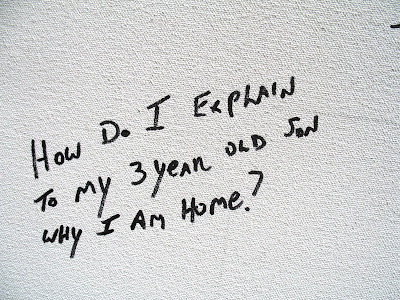 HOW DO I EXPLAIN
TO MY 3 YEAR OLD SON
WHY I AM HOME?